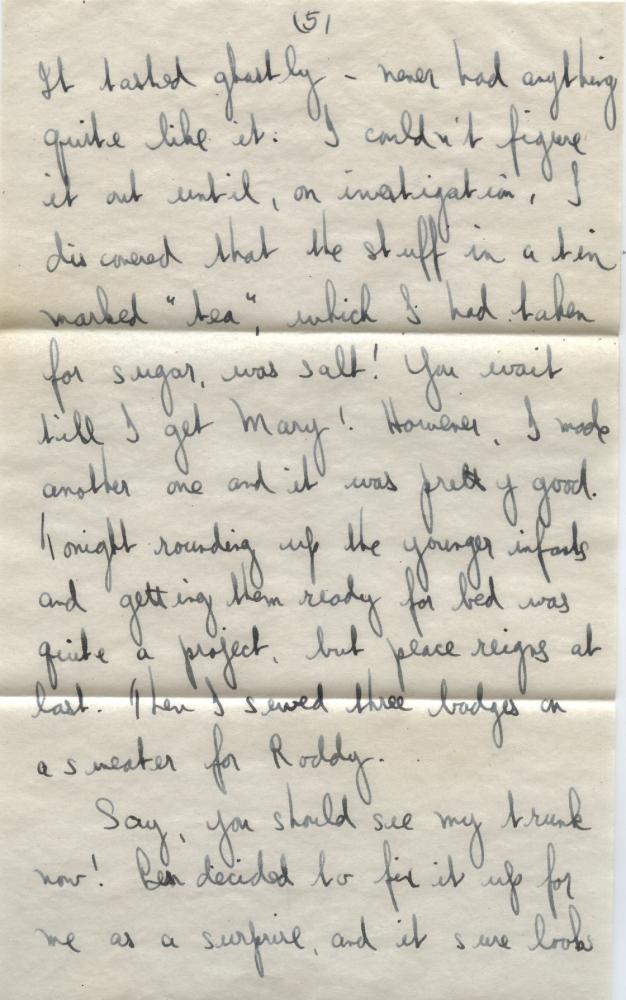 (5)
It tasted ghastly - never had anything
quite like it. I couldn't figure
it out until, on investigation, I
discovered that the stuff in a tin
marked "tea", which I had taken
for sugar, was salt! You wait
till I get Mary! However, I made
another one and it was pretty good.
Tonight rounding up the younger infants
and getting them ready for bed was
quite a project, but peace reigns at
last. Then I sewed three badges on
a sweater for Roddy.
Say, you should see my trunk
now! Ben decided to fix it up for
me as a surprise, and it sure looks